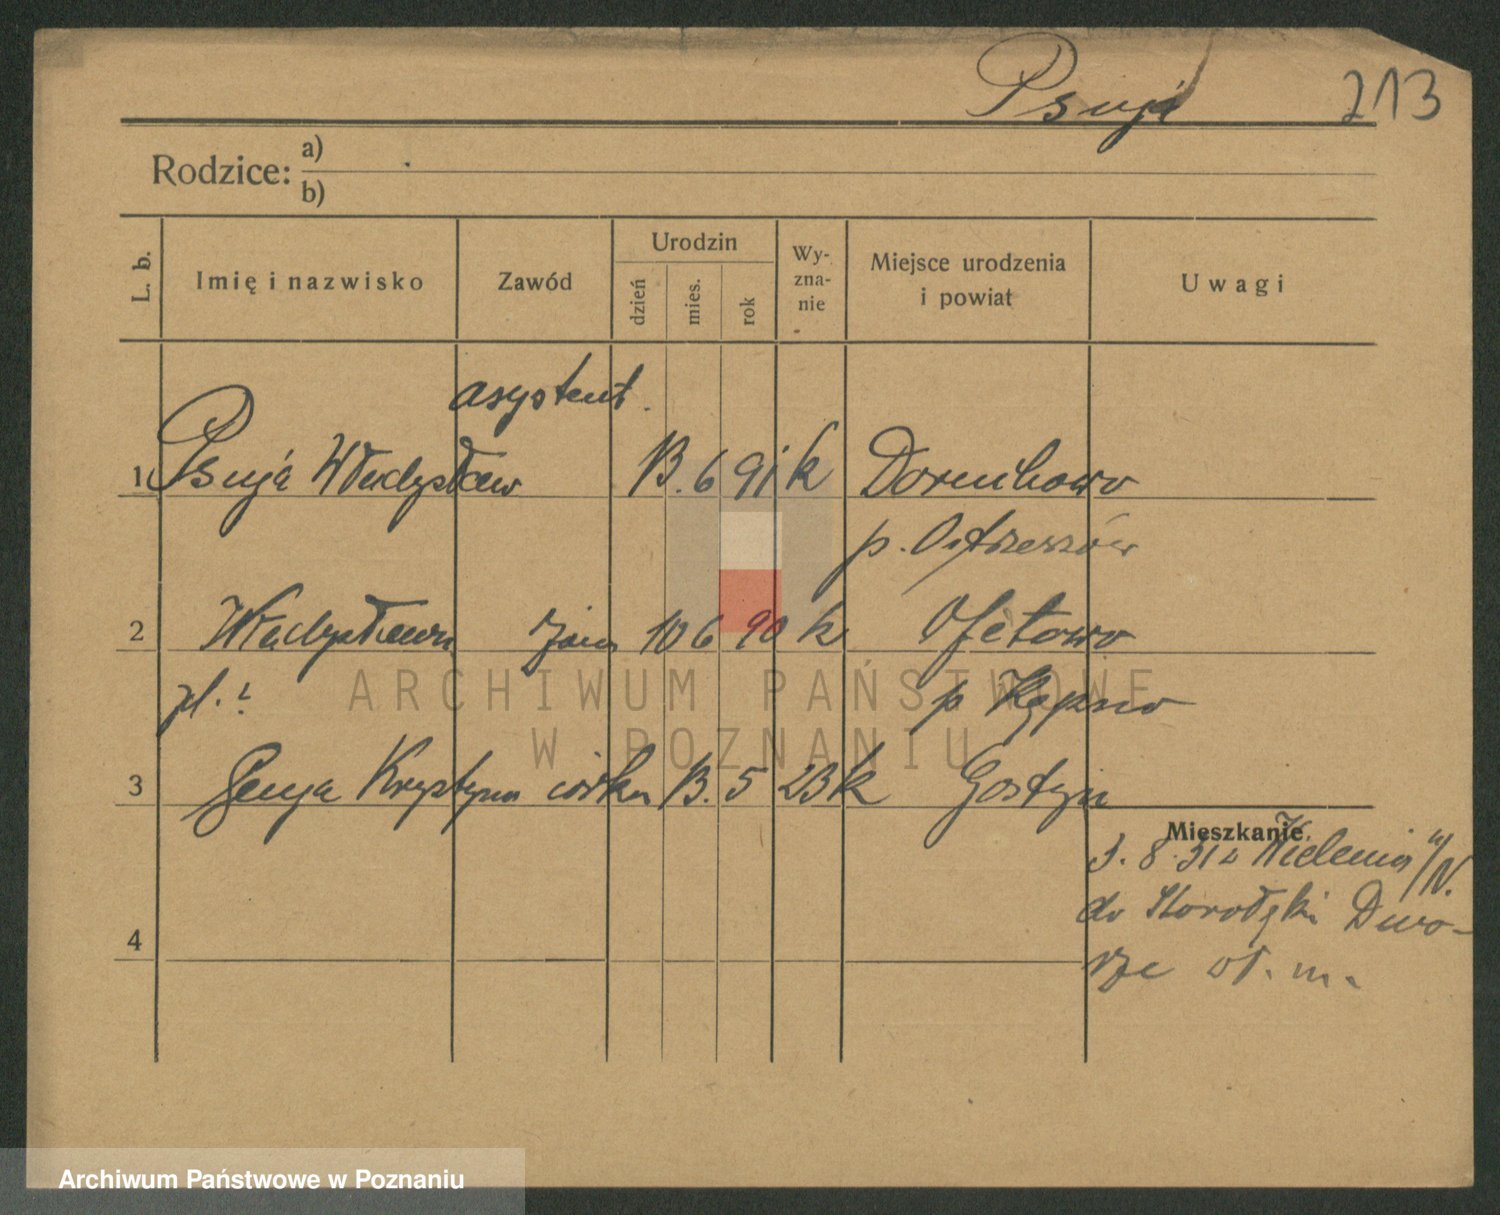 Psuja 213
Rodzice: a)
b)
L. b. Imię i nazwisko Zawód Urodzin dzień mies. rok Wy-zna-nie Miejsce urodzenia i powiat Uwagi
asystent.
1 Psuja Władysław 13. 6 91 k
p. Ostrzeszów
2 Władysława żona 10 6 90 k
p Kępno
3 Genja Krystyna córka 13. 5 23 k Gostyń
Mieszkanie
3. 8. 31 z Wielenia n/N.
do Starołęki Dwo-
rze
4
ARCHIWUM PAŃSTWOWE
W POZNANIU
Archiwum Państwowe w Poznaniu